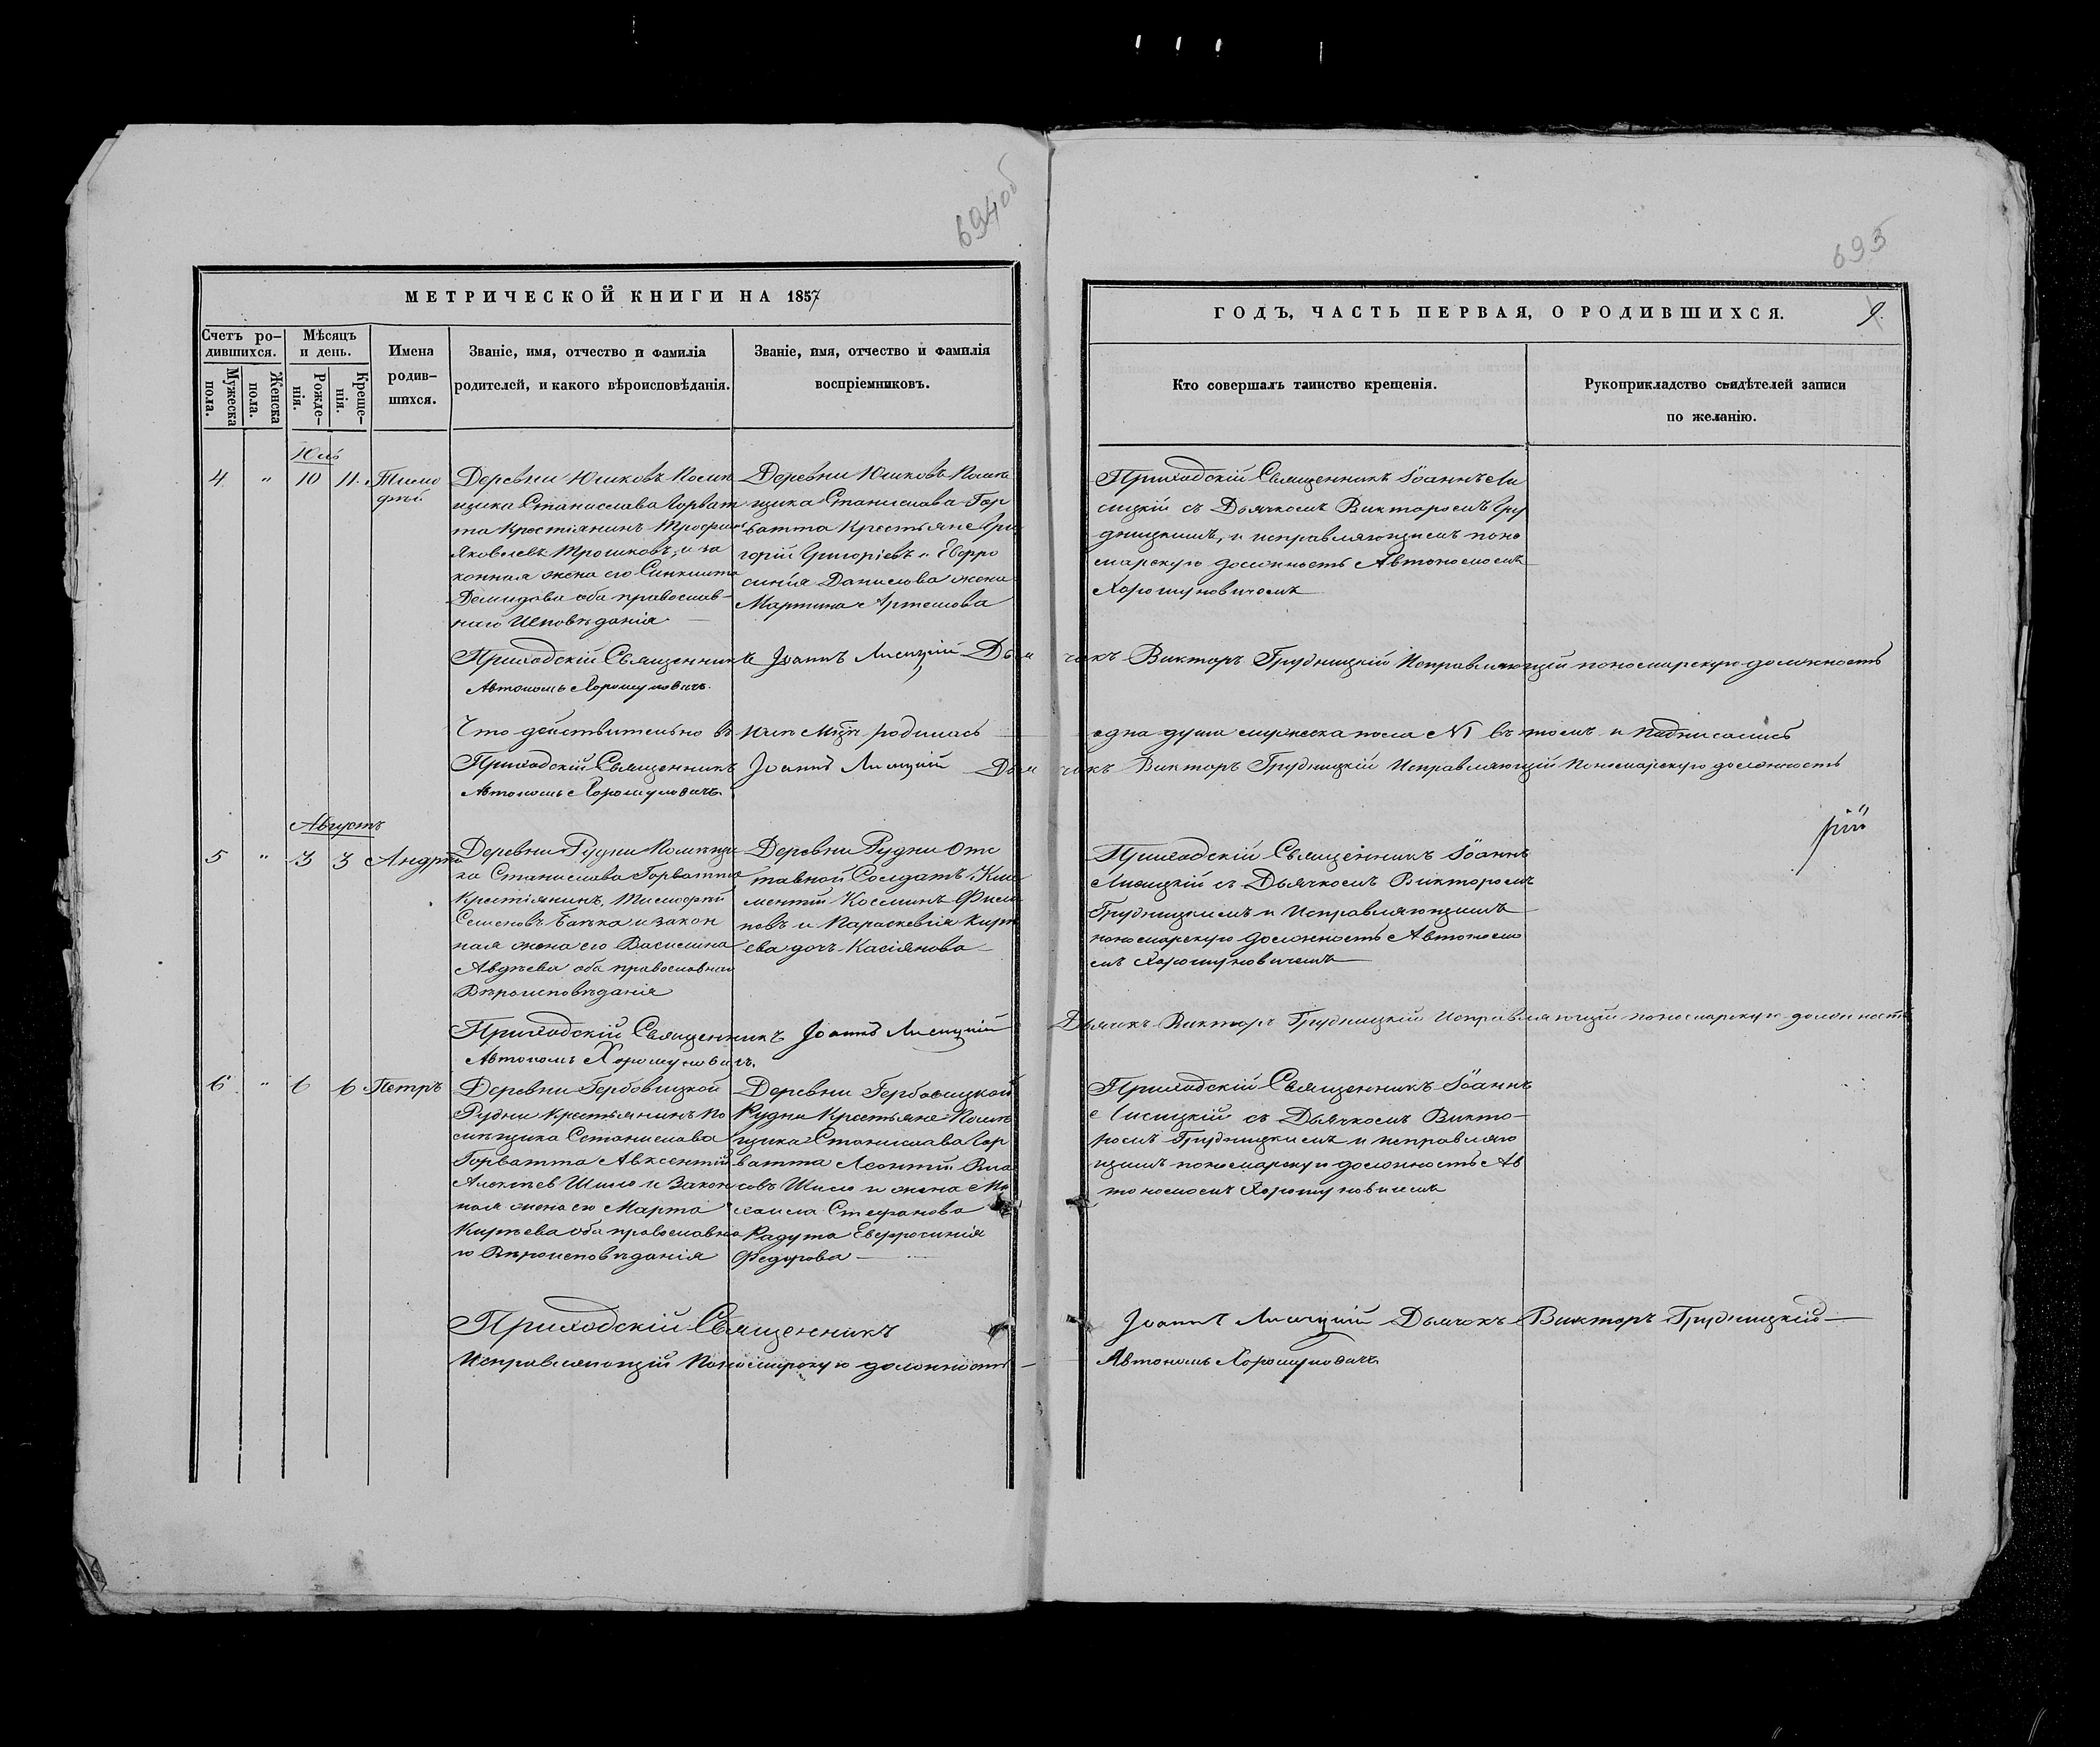 694об
695
МЕТРИЧЕСКОЙ КНИГИ НА 1857
ГОДЪ, ЧАСТЬ ПЕРВАЯ, О РОДИВШИХСЯ.
9.
Счетъ ро-
дившихся.
Мужеска
пола.
Женска
пола.
Мѣсяцъ
и день.
Рожде-
нія.
Креще-
нія.
Имена
родив-
шихся.
Званіе, имя, отчество и фамилія
родителей, и какого вѣроисповѣданія.
Званіе, имя, отчество и фамилія
воспріемниковъ.
Кто совершалъ таинство крещенія.
Рукоприкладство свидѣтелей записи
по желанію.
Юль
4 " 10 11 Тимо
фѣй
Деревни Юшковъ Помѣ
щика Станислава Горват
та Крестіянинъ Трофим
Яковлевъ Трошковъ и за
конная жена его Синклита
Демидова оба православ-
наго Исповѣданія
Деревни Юшковъ Помѣ
щика Станислава Гор
ватта Крестьяне Гри
горій Григоріевъ и Евфро
синія Данилова жена
Мартина Артемова
Приходскій Священникъ Іоаннъ Ли
сицкій съ Дьячкомъ Викторомъ Гру
дницкимъ, и исправляющимъ поно
марскую должность Автономомъ
Хорошуновичемъ
Приходскій Священникъ Іоаннъ Лисицкій Дья
чокъ Викторъ Грудницкій Исправляющій пономарскую должность
Автономъ Хорошуновичъ.
Что действительно въ Юлѣ Мцѣ родилась
одна душа мужеска пола №1 въ томъ и подписались
Приходскій Священникъ Іоаннъ Лисицкій Дья
чокъ Викторъ Грудницкій Исправляющій Пономарскую должность
Автономъ Хорошуновичъ.
Августъ
5 " 3 3 Андрей
Деревни Рудни Помѣщи
ка Станислава Горватта
Крестіянинъ Тимофей
Семеновъ и закон
ная жена его Василина
Авдѣева оба православнаго
Вѣроисповѣданія
Деревни Рудни Отс
тавной Солдатъ Кли
ментій Косминъ Фили
повъ и Параскевія Кирѣ
ева дочъ Касіянова
Приходскій Священникъ Іоаннъ
Лисицкій съ Дьячкомъ Викторомъ
Грудницкимъ и Исправляющимъ
пономарскую должность Автономо
мъ Хорошуновичемъ
Приходскій Священникъ Іоаннъ Лисицкій
Дьячокъ Викторъ Грудницкій Исправляющій пономарскую должность
Автономъ Хорошуновичъ.
6 " 6 6 Петръ
Деревни Гербовицкой
Рудни Крестьянинъ По
мѣщика Станислава
Горватта Авксентій
Алексѣев Шило и Закон
ная жена его Марта
Кирѣева оба православна
го Вѣроисповѣданія
Деревни Гербовицкой
Рудни Крестьяне Помѣ
щика Станислава Гор
ватта Леонтій Вла
совъ Шило и жена Ми
хаила Стефанова
Радута Евфросинія
Федорова
Приходскій Священникъ Іоаннъ
Лисицкій съ Дьячкомъ Викто-
ромъ Грудницкимъ и исправляю
щимъ пономарскую должность Ав
тономомъ Хорошуновичемъ
Приходскій Священникъ
Іоаннъ Лисицкій Дьячокъ Викторъ Грудницкій
Исправляющій Пономарскую должность
Автономъ Хорошуновичъ.